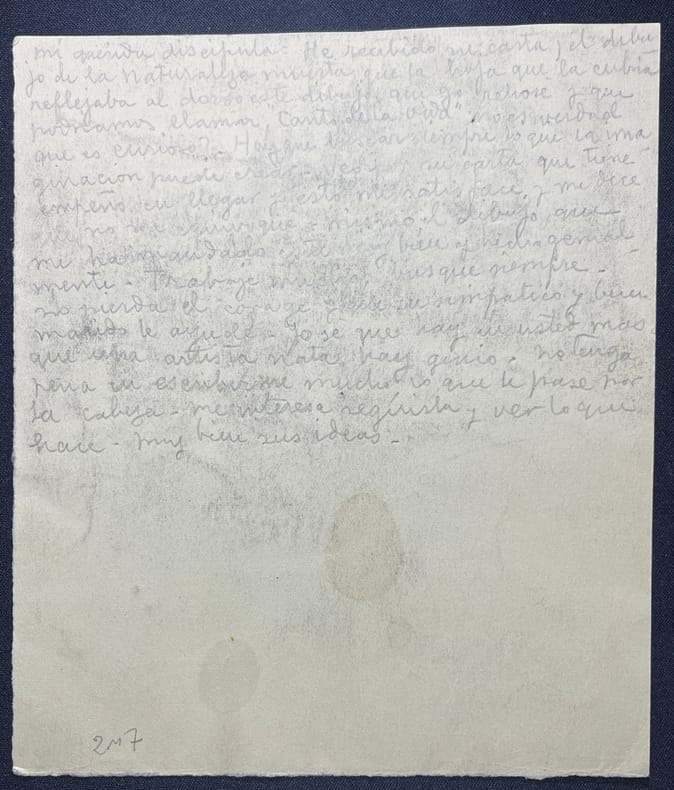 mi querida discipula - He recibido su carta y el dibu-
jo de la naturaleza muerta, que la hoja que la cubria
reflejaba al dorso este dibujo, que yo retoce y que
podreamos llamar "Canto de la vida" no es verdad
que es curioso? - Hay que buscar siempre lo que la ima
ginacion puede crear - veo y su carta que tiene
empeño en llegar y esto me satisface, y me dice
que no me equivoque - mismo el dibujo que
me ha mandado está muy bien y hecho genial
mente - Trabaje mucho, busque siempre -
no pierda el corage que su simpatico y buen
marido le ayude - Yo sé que hay en usted mas
que una artista nata, hay genio - no tenga
pena en escribirme mucho lo que le pase por
la cabeza - me interesa seguirla y ver lo que
hace - muy bien sus ideas -
2M7